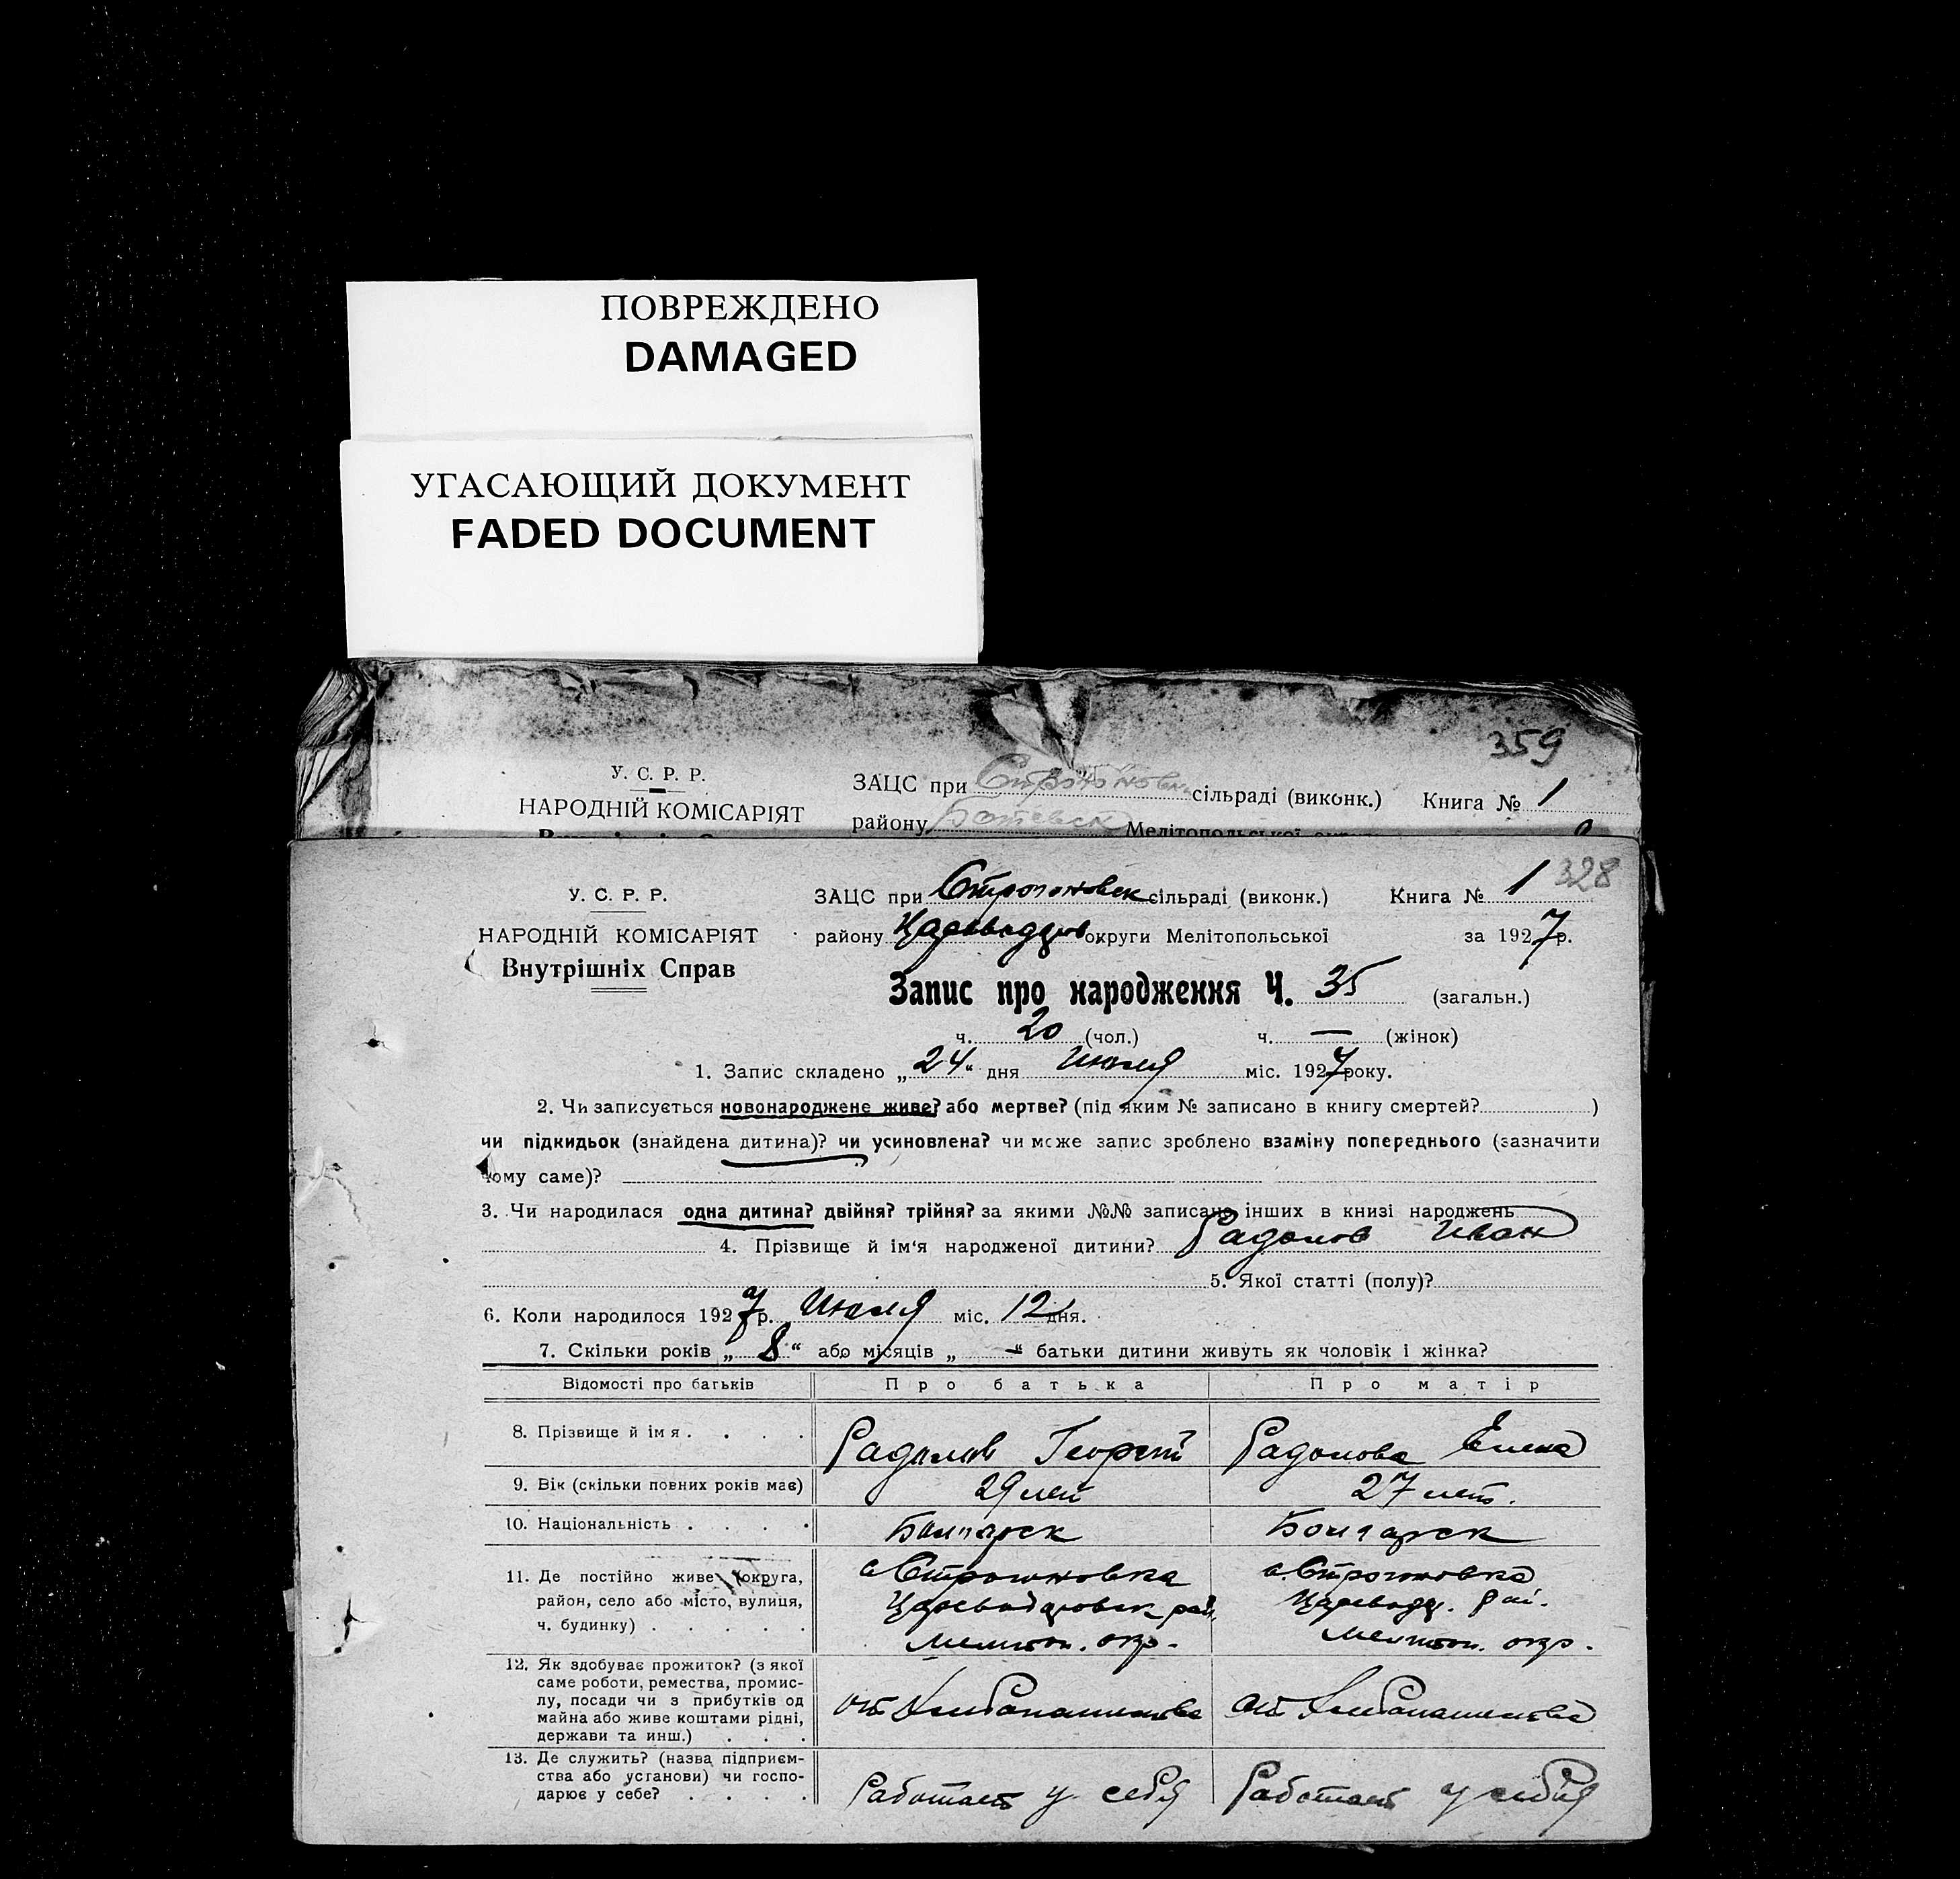 ПОВРЕЖДЕНО
DAMAGED
УГАСАЮЩИЙ ДОКУМЕНТ
FADED DOCUMENT
359
У. С. Р. Р.
ЗАЦС при Строгоновск сільраді (виконк.) Книга № 1
НАРОДНІЙ КОМІСАРІЯТ
району Ботевск Мелітопольської
328
У. С. Р. Р.
ЗАЦС при Строгоновск сільраді (виконк.) Книга № 1
НАРОДНІЙ КОМІСАРІЯТ
району Цареводаров округи Мелітопольської за 1927 р.
Внутрішніх Справ
Запис про народження Ч. 35 (загальн.)
ч. 20 (чол.) ч. — (жінок)
1. Запис складено „ 24 “ дня Июля міс. 1927 року.
2. Чи записується новонароджене живе? або мертве? (під яким № записано в книгу смертей? )
чи підкидьок (знайдена дитина)? чи усиновлена? чи може запис зроблено взаміну попереднього (зазначити
чому саме)?
3. Чи народилася одна дитина? двійня? трійня? за якими №№ записано інших в книзі народжень
4. Прізвище й ім‘я народженої дитини? Радолов Иван
5. Якої статті (полу)?
6. Коли народилося 1927 р. Июля міс. 12 дня.
7. Скільки років „ 8 “ або місяців „ — “ батьки дитини живуть як чоловік і жінка?
Відомості про батьків Про батька Про матір
8. Прізвище й імя . . . . Радолов Георгий Радолова Елена
9. Вік (скільки повних років має) 29 лет 27 лет.
10. Національність . . . . Болгарск Болгарск
11. Де постійно живе (округа, с Строгоновка с. Строгоновка
район, село або місто, вулиця, рай. рай.
ч. будинку) . . . . . Мелитоп. окр. Мелитоп. окр.
12. Як здобуває прожиток? (з якої
саме роботи, ремества, промис-
лу, посади чи з прибутків од от Хлебопашества от Хлебопашества
майна або живе коштами рідні,
держави та инш.) . . .
13. Де служить? (назва підприєм-
ства або установи) чи госпо- Работает у себя Работает у себя
дарює у себе? . . . .